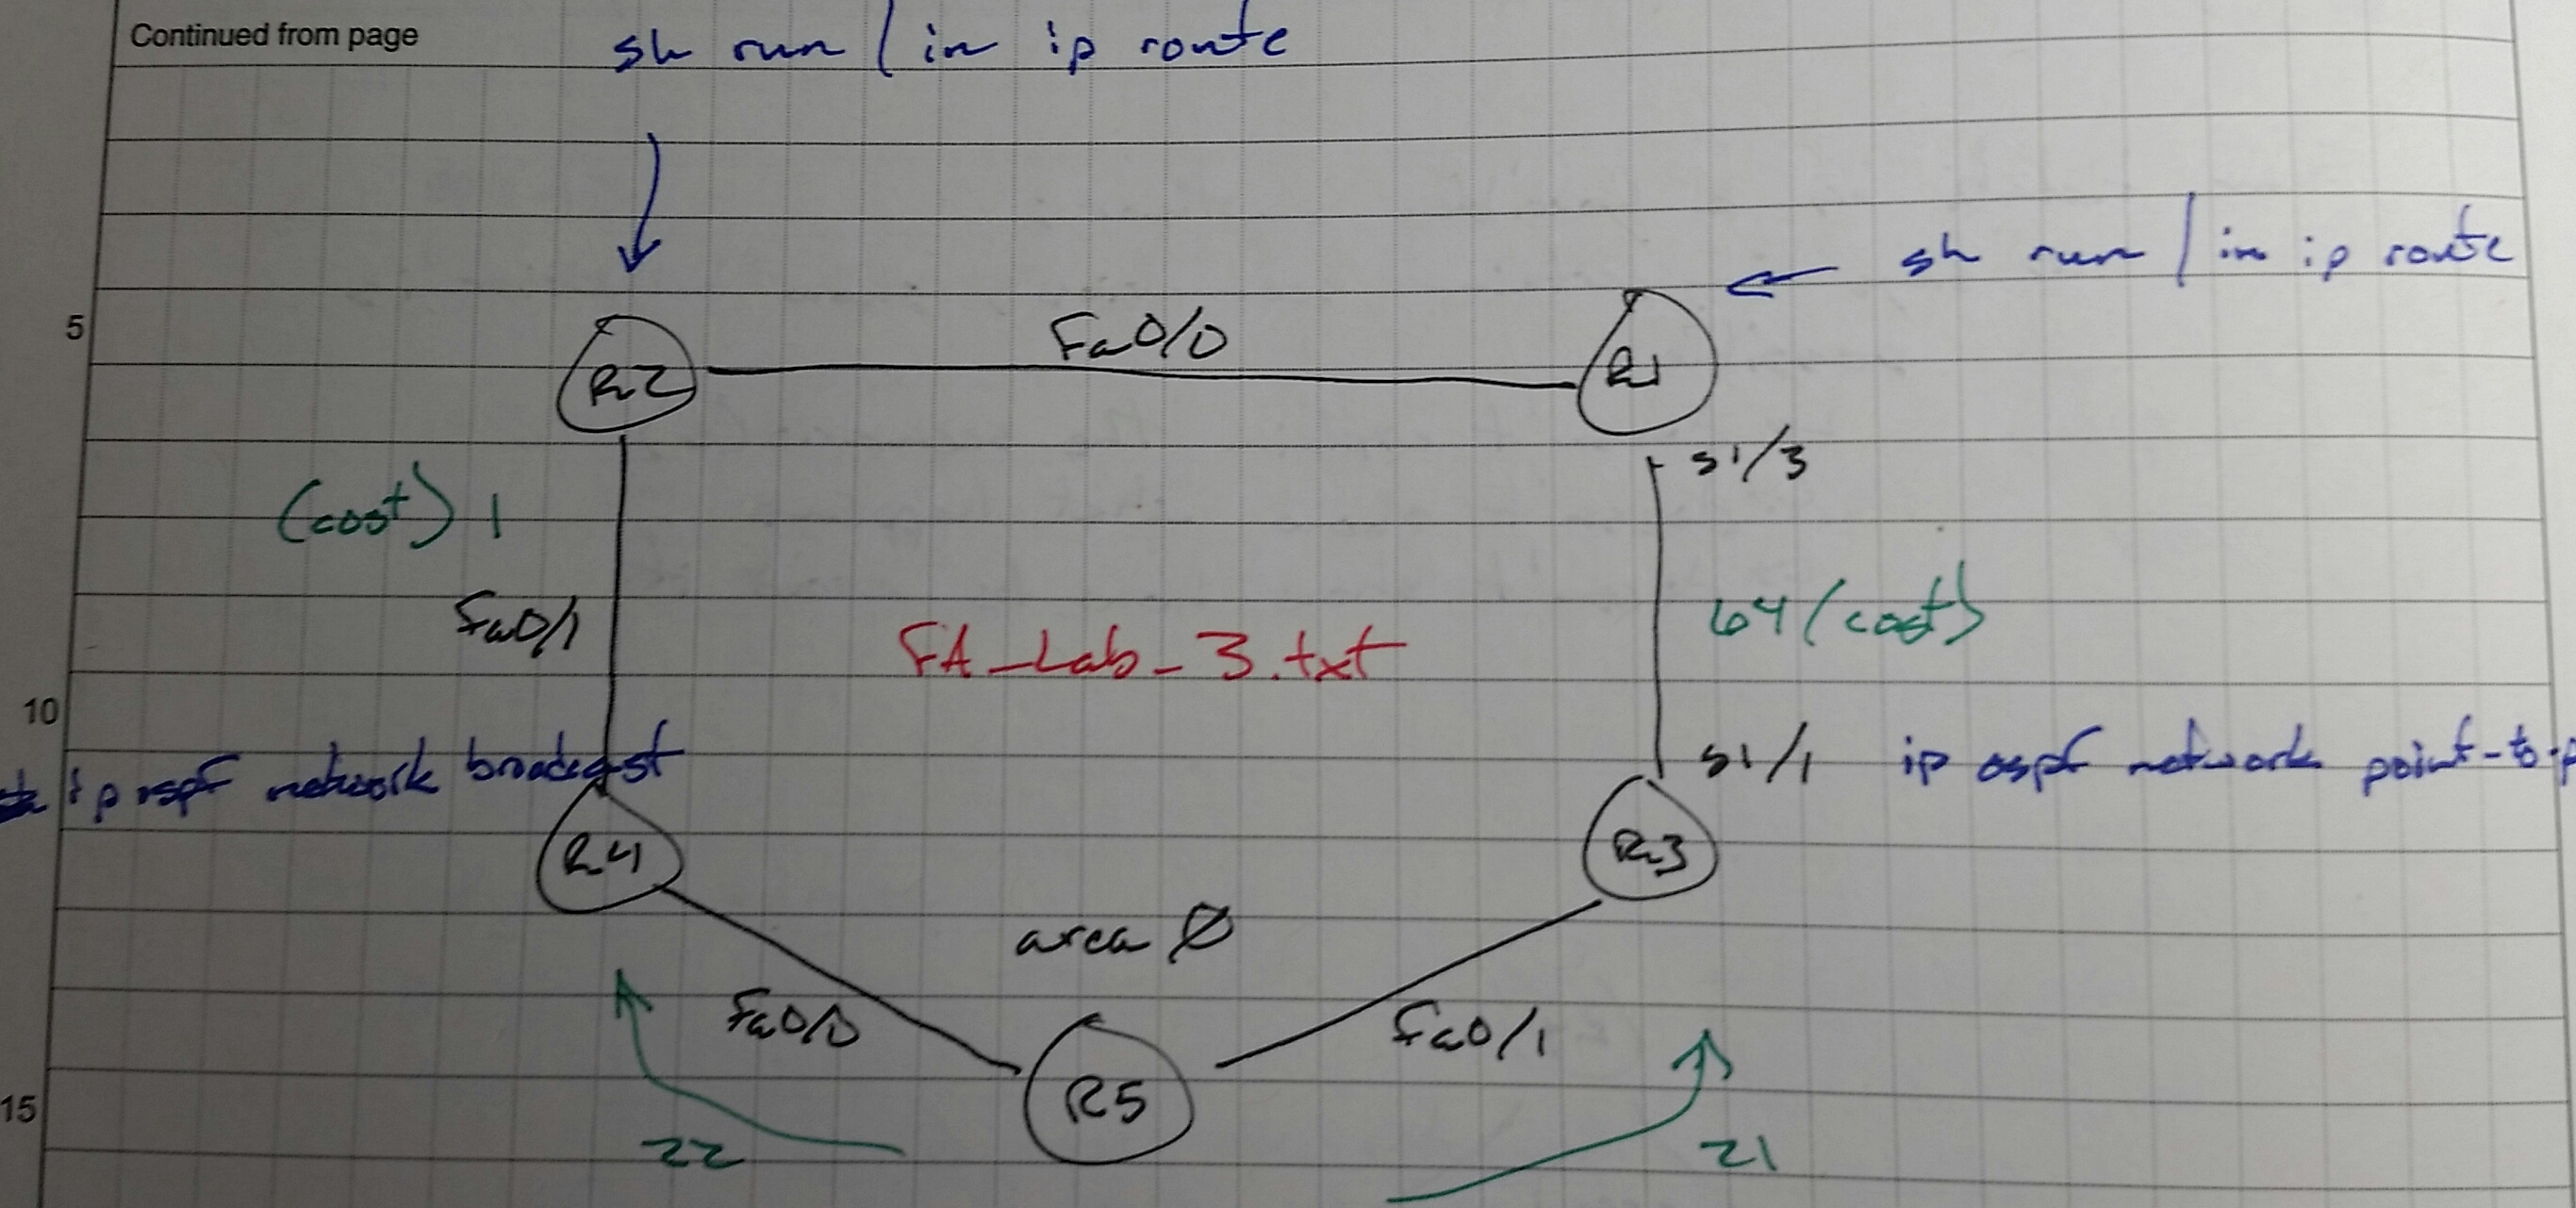 Continued from page
sh run | in ip route
sh run | in ip route
5
Fa0/0
R2
R1
s1/3
(cost) 1
Fa0/1
64 (cost)
FA_Lab_3.txt
10
ip ospf network broadcast
s1/1 ip ospf network point-to-p
R4
R3
area 0
Fa0/0
Fa0/1
R5
15
22
21